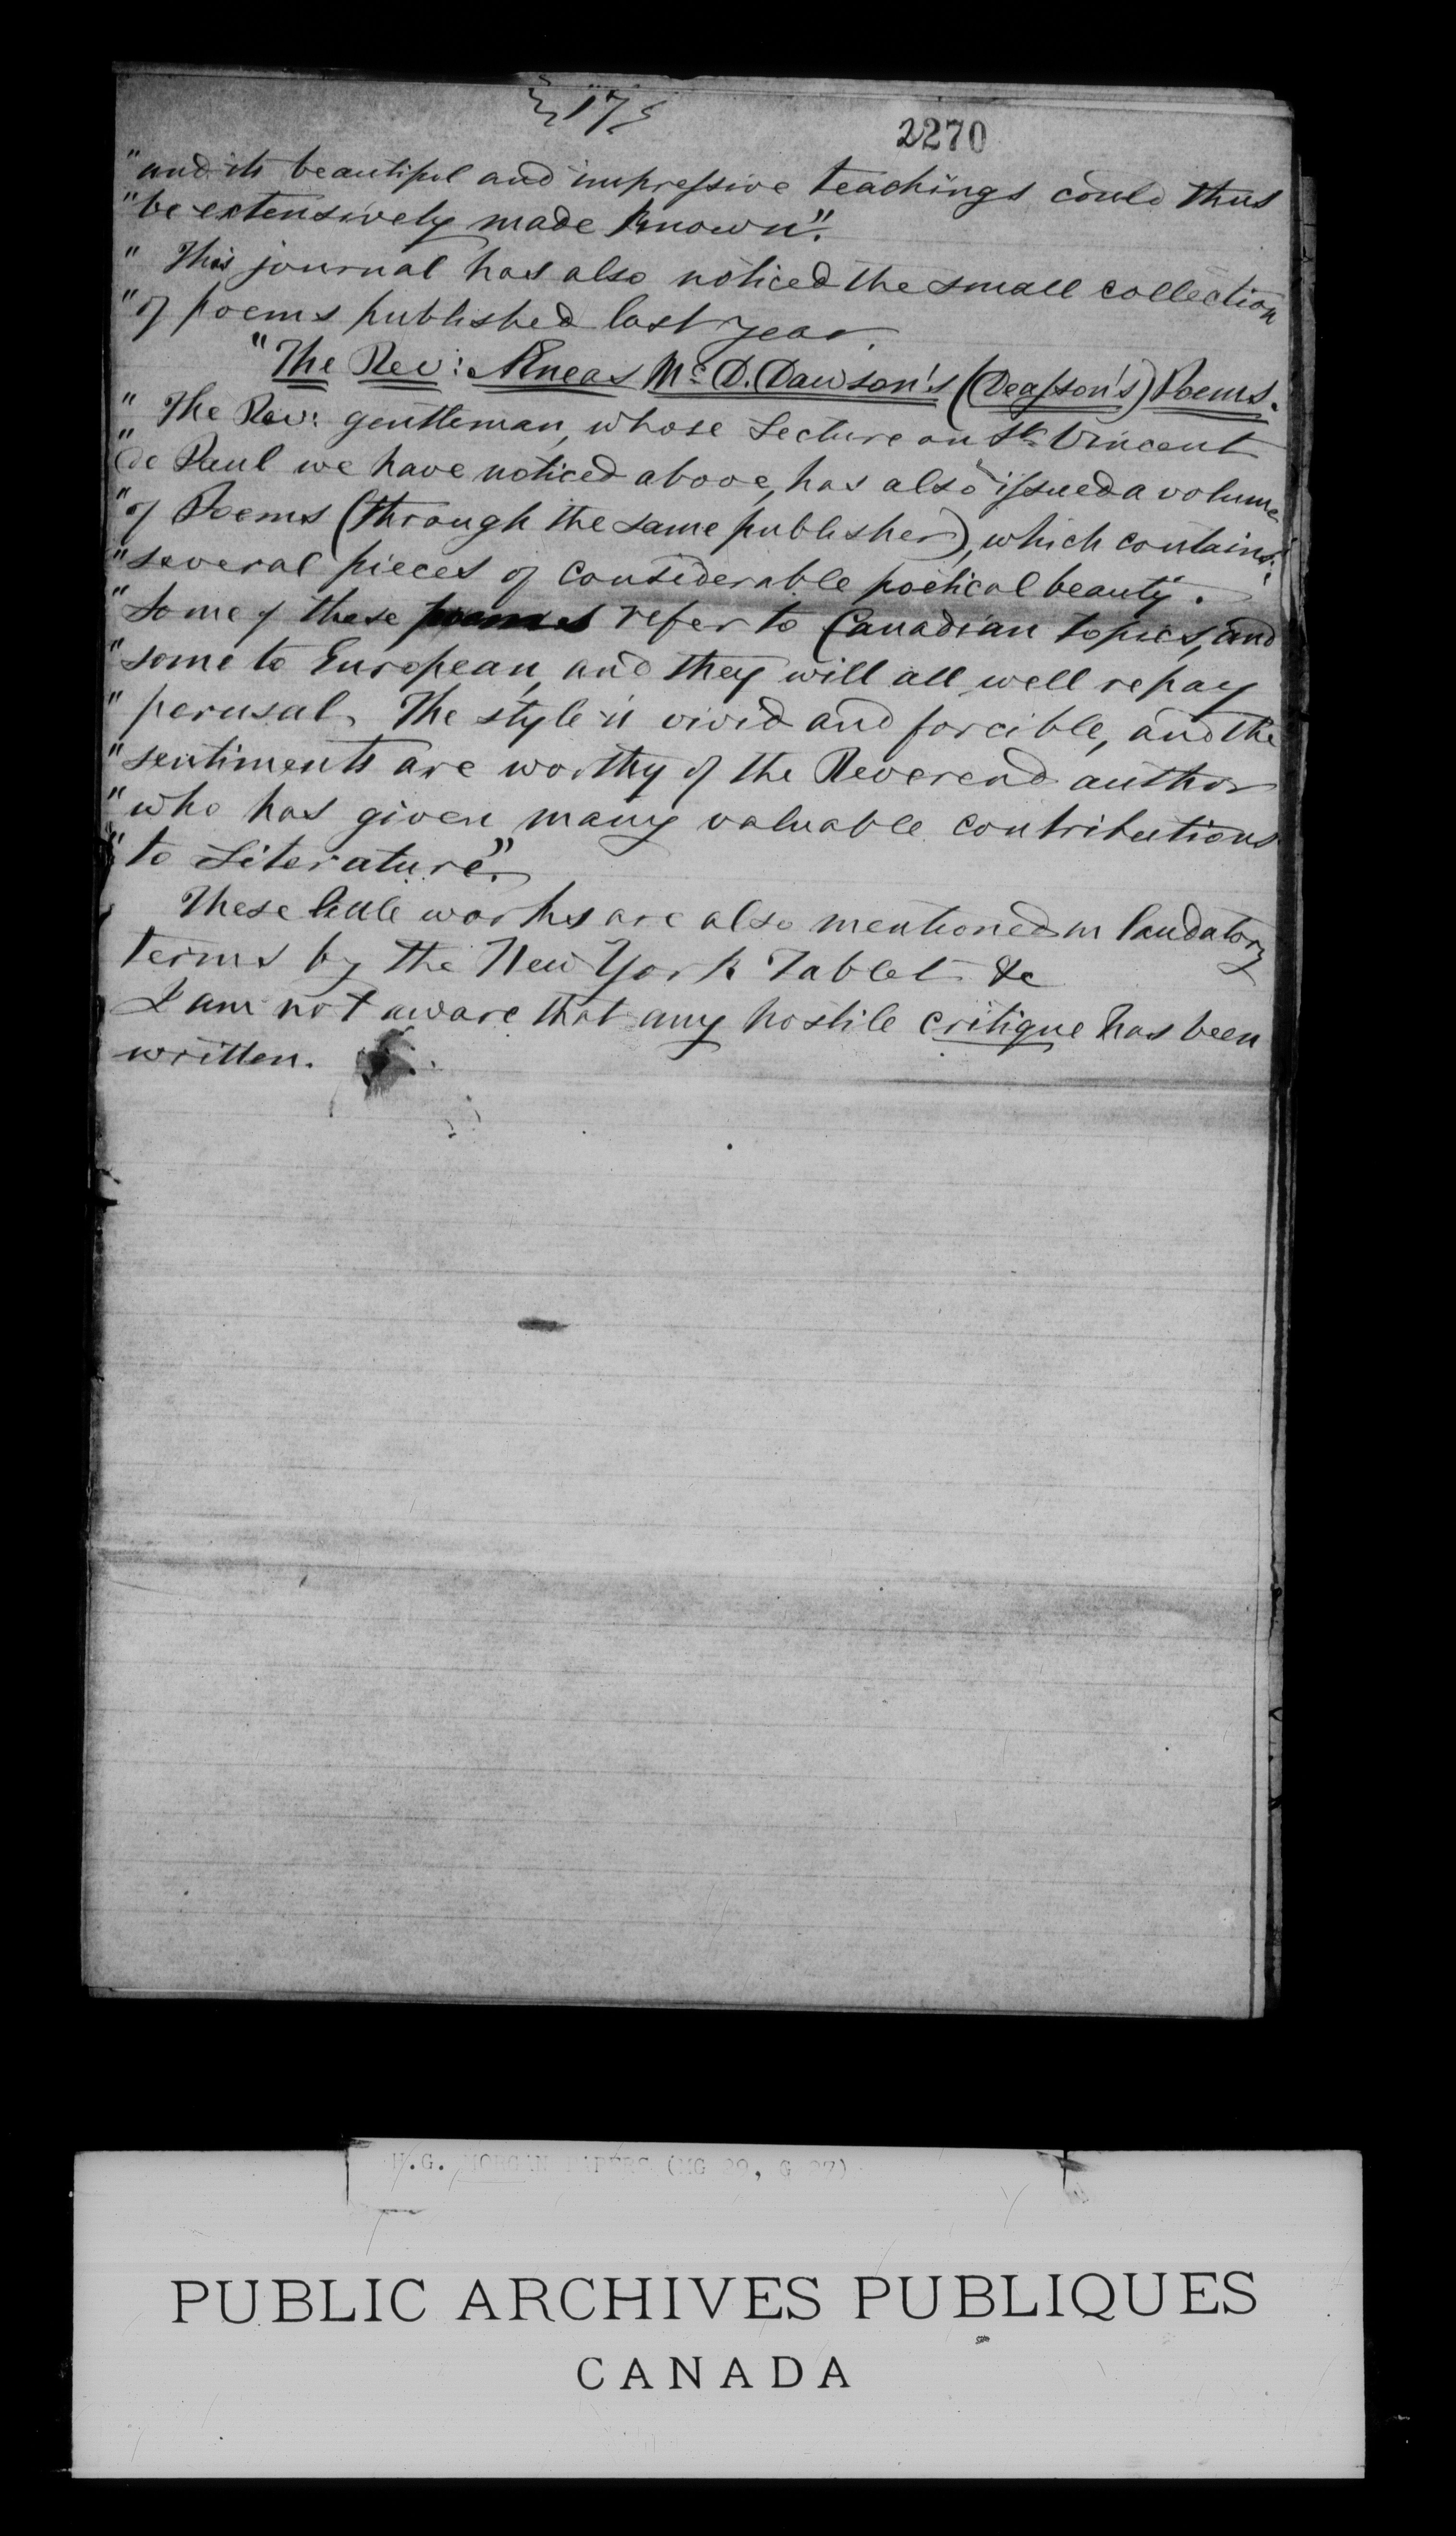 17
2270
"and its beautiful and impressive teachings could thus
"be extensively made known".
" This journal has also noticed the small collection
"of poems published last year.
"The Rev: Æneas McD. Dawson's (Deasson's) Poems.
" The Rev: gentleman, whose Lecture on St. Vincent
"de Paul we have noticed above, has also issued a volume
"of Poems (through the same publisher), which contains
"several pieces of considerable poetical beauty.
"Some of these poems refer to Canadian topics, and
"some to European, and they will all well repay
"perusal. The style is vivid and forcible, and the
"sentiments are worthy of the Reverend author
"who has given many valuable contributions
"to Literature".
These little works are also mentioned in laudatory
terms by the New York Tablet &c
I am not aware that any hostile critique has been
written.
H.G. MORGAN PAPERS (MG 29, G 27)
PUBLIC ARCHIVES PUBLIQUES
CANADA